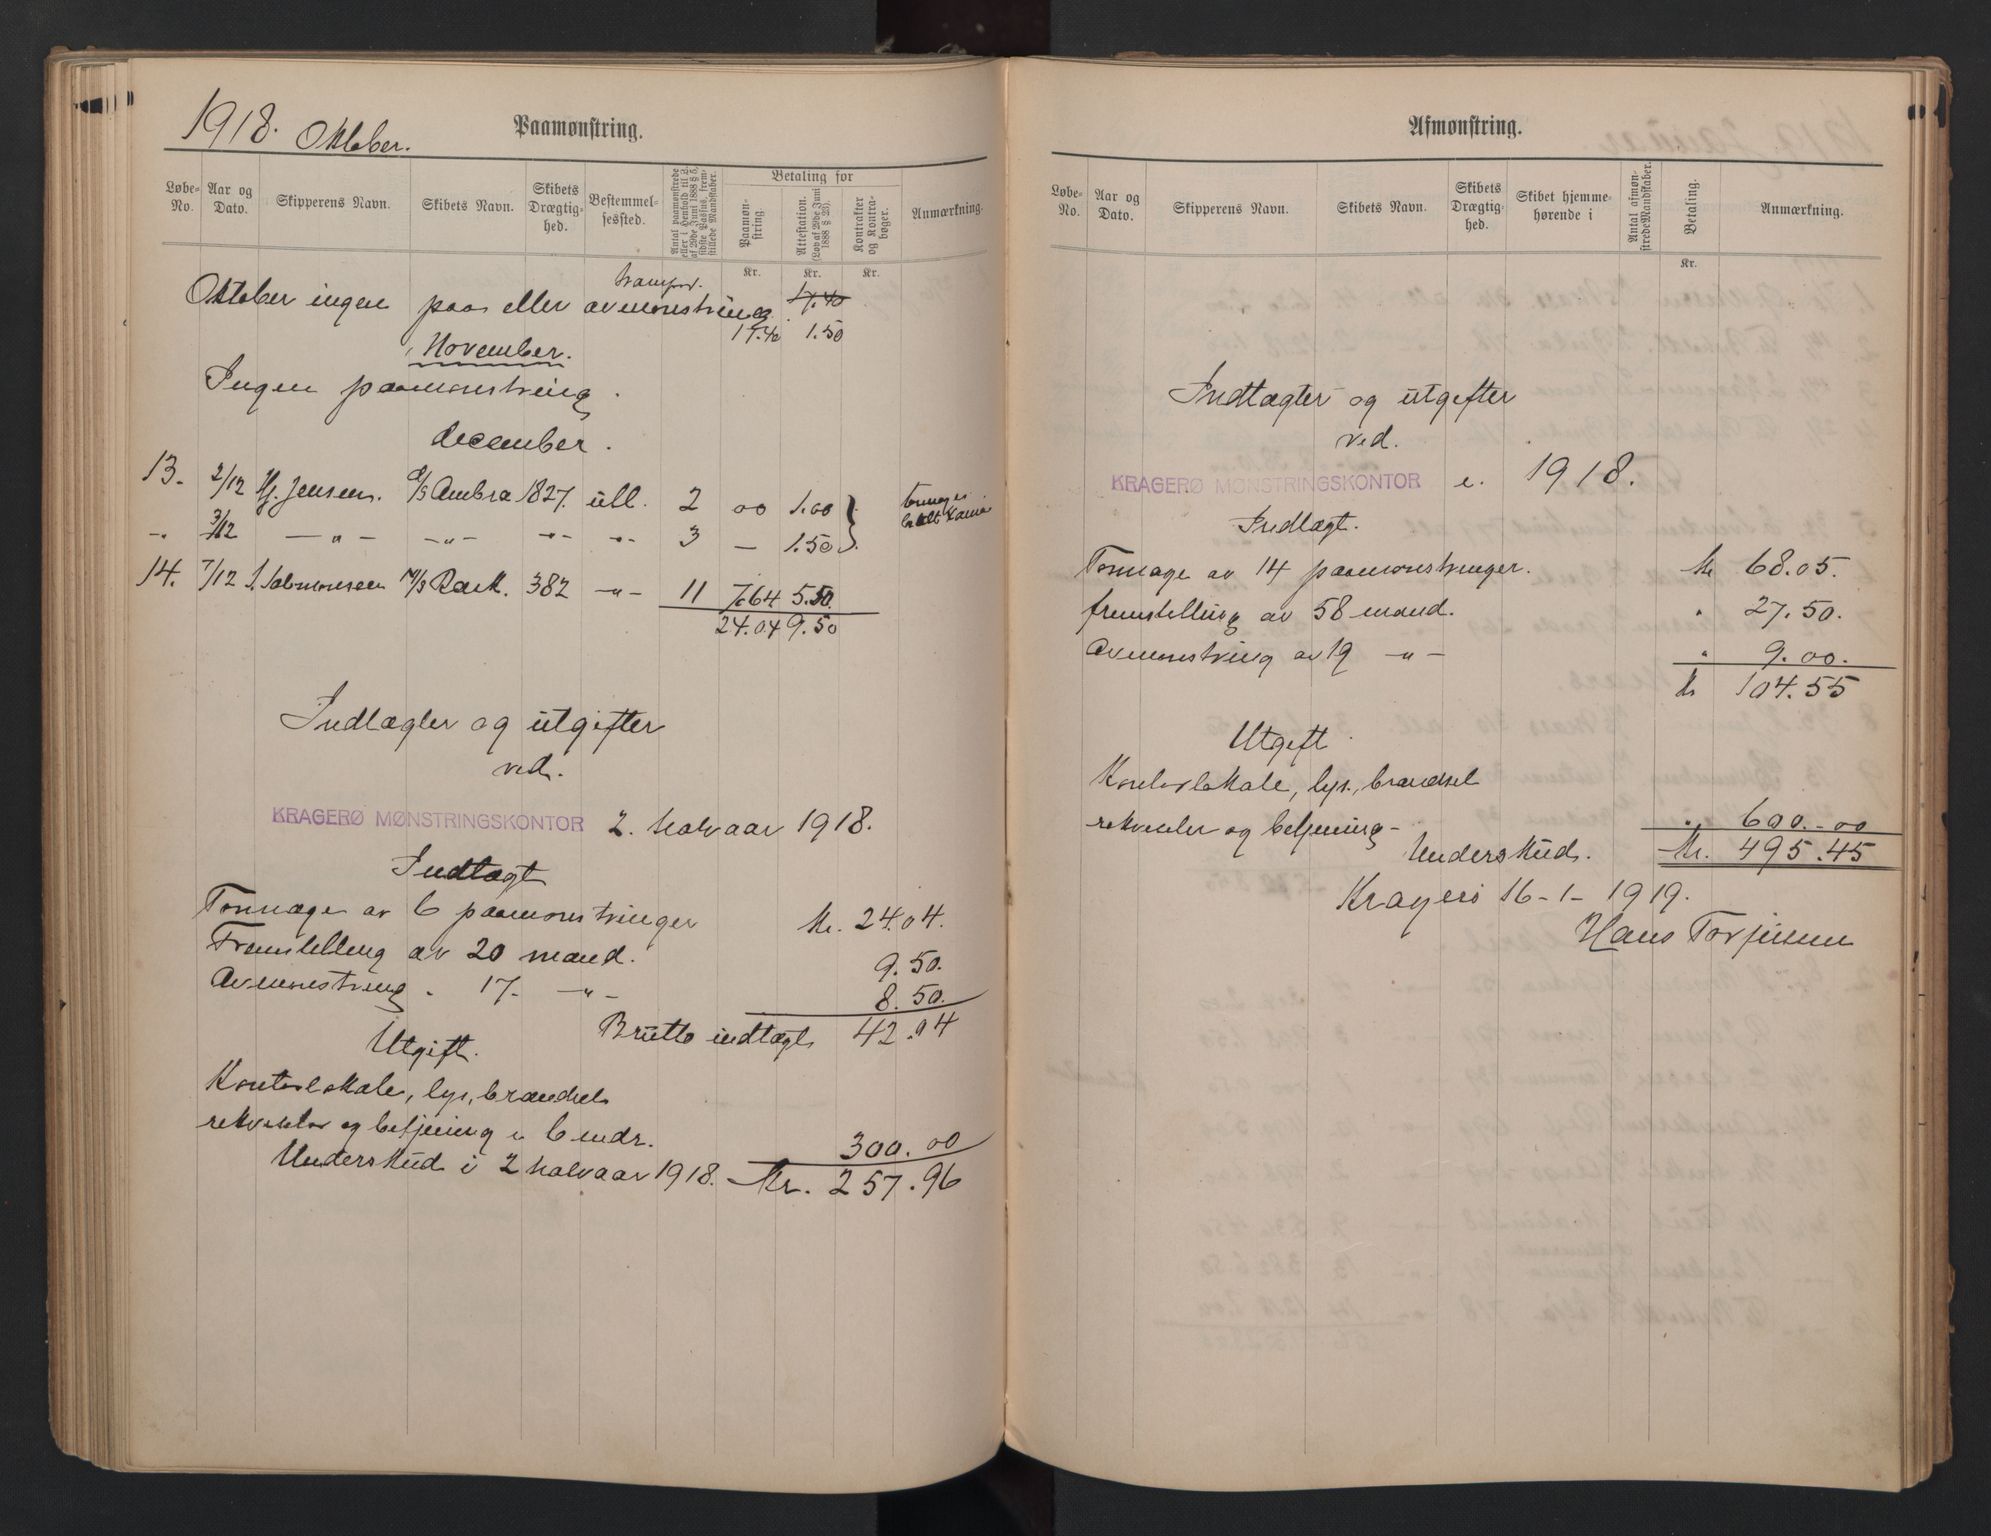 1918. Oktober.
Paamønstring.
Løbe-No.
Aar og Dato.
Skipperens Navn.
Skibets Navn.
Skibets Drægtighed.
Bestemmelsessted.
Antal paamønstrede eller i Henhold til 2. af 29de Juni 1888 § 5, sidste Passus, fremstillede Mandskaber.
Betaling for
Paamønstring.
Attestation. (Lov af 29de Juni 1888 § 23).
Kontrakter og Kontrabøger.
Anmærkning.
Kr. Kr. Kr.
transp. 17.40
Oktober ingen paa eller avmønstring.
17.40 1.50
November.
Ingen paamønstring.
december.
13. 2/12 Hj. Jensen. D/S Ambra 1827. utl. 2 00 1.00 tonnage
-„ 3/12 — „ — —„— „ „ 3 — 1.50
14. 7/12 S. Salomonsen M/S Rask. 382 —„— 11 7.64 5.50.
24.04 9.50
Indtægter og utgifter
ved.
KRAGERØ MØNSTRINGSKONTOR 2. halvaar 1918.
Indtægt
Tonnage av 6 paamønstringer Kr. 24.04.
Fremstilling av 20 mand. 9.50.
Avmønstring „ 17. —„— 8.50.
Brutto indtægt 42.04
Utgift.
Kontorlokale, lys, brændsel
rekvisiter og betjening i 6 mdr. 300.00
Underskud i 2 halvaar 1918. Kr. 257.96
Afmønstring.
Løbe-No.
Aar og Dato.
Skipperens Navn.
Skibets Navn.
Skibets Drægtighed.
Skibet hjemmehørende i
Antal afmønstrede Mandskaber.
Betaling.
Anmærkning.
Kr.
Indtægter og utgifter
ved.
KRAGERØ MØNSTRINGSKONTOR i. 1918.
Indtægt.
Tonnage av 14 paamønstringer. Kr 68.05.
fremstilling av 58 mand. „ 27.50.
Avmønstring av 19 —„— „ 9.00.
Kr 104.55
Utgift
Kontorlokale, lys, brændsel
rekvisiter og betjening - „ 600.-00
Underskud. Kr. 495.45
Kragerø 16-1-1919.
Hans Torjussen